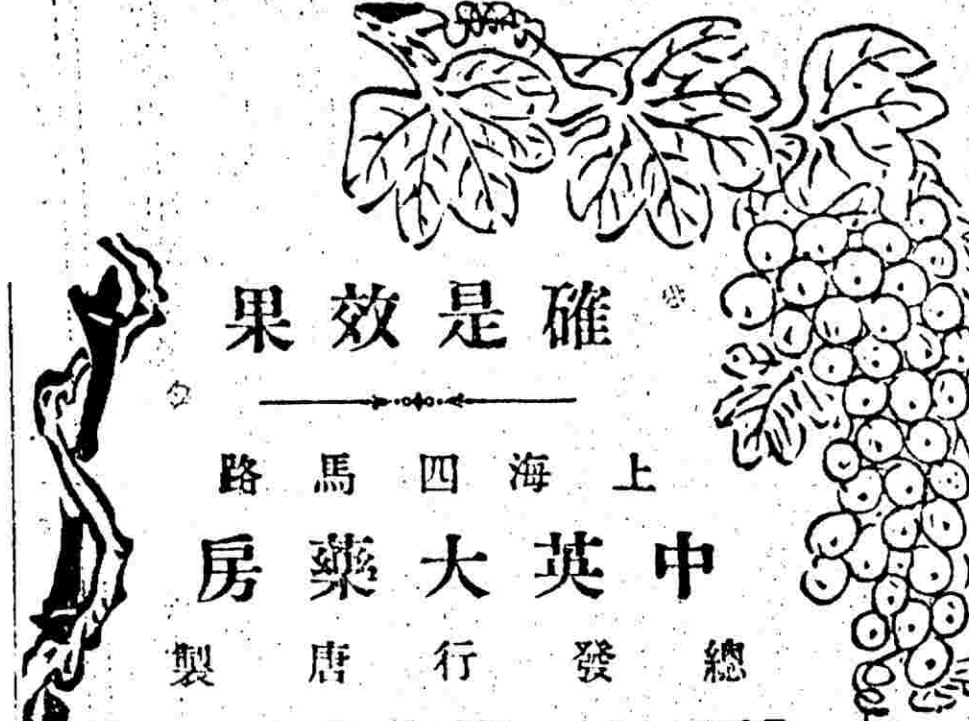 確是效果
上海四馬路
中英大藥房
總發行唐製